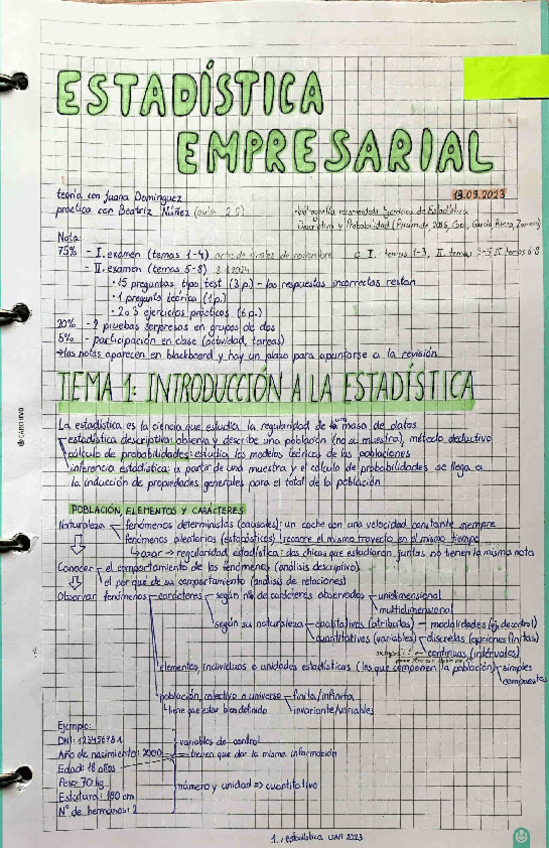 ESTADÍSTICA
EMPRESARIAL
19.09.2023
teoría con Juana Domínguez
práctica con Beatriz Núñez (aula 2.5)
bibliografía recomendada: Ejercicios de Estadística
Descriptiva y Probabilidad
Nota:
75% - I. examen (temas 1-4)
- II. examen (temas 5-8)
• 15 preguntas tipo test (3 p.) - las respuestas incorrectas restan
• 1 pregunta teórica (1 p.)
• 2 o 3 ejercicios prácticos (6 p.)
20% - 2 pruebas sorpresas en grupos de dos
5% - participación en clase (actividad, tareas)
→ las notas aparecen en blackboard y hay un plazo para apuntarse a la revisión
TEMA 1: INTRODUCCIÓN A LA ESTADÍSTICA
La estadística es la ciencia que estudia la regularidad de una masa de datos.
estadística descriptiva: observa y describe una población (no su muestra), método deductivo
cálculo de probabilidades: estudia los modelos teóricos de las poblaciones
inferencia estadística: a partir de una muestra y el cálculo de probabilidades se llega a
la inducción de propiedades generales para el total de la población
POBLACIÓN, ELEMENTOS Y CARÁCTERES
Naturaleza fenómenos deterministas (causales): un coche con una velocidad constante siempre
fenómenos aleatorios (estadísticos) recorre el mismo trayecto en el mismo tiempo
↳ azar → regularidad estadística: dos chicas que estudiaron juntas no tienen la misma nota
Conocer el comportamiento de los fenómenos (análisis descriptivo)
el por qué de su comportamiento (análisis de relaciones)
Observar fenómenos carácteres según nº de carácteres observados unidimensional
multidimensional
según su naturaleza cualitativos (atributos) - modalidades (ej. de control)
cuantitativos (variables) discretas (opciones finitas)
continuas (intervalos)
elementos, individuos o unidades estadísticas (los que componen la población) simples
compuestas
población, colectivo o universo finita/infinita
tiene que estar bien definido invariante/variables
Ejemplo:
DNI: 12345678A variables de control
Año de nacimiento: 2000 tienen que dar la misma información
Edad: 18 años
Peso: 70 kg
Estatura: 180 cm número y unidad => cuantitativo
Nº de hermanos: 2
1., estadística UAH 2023